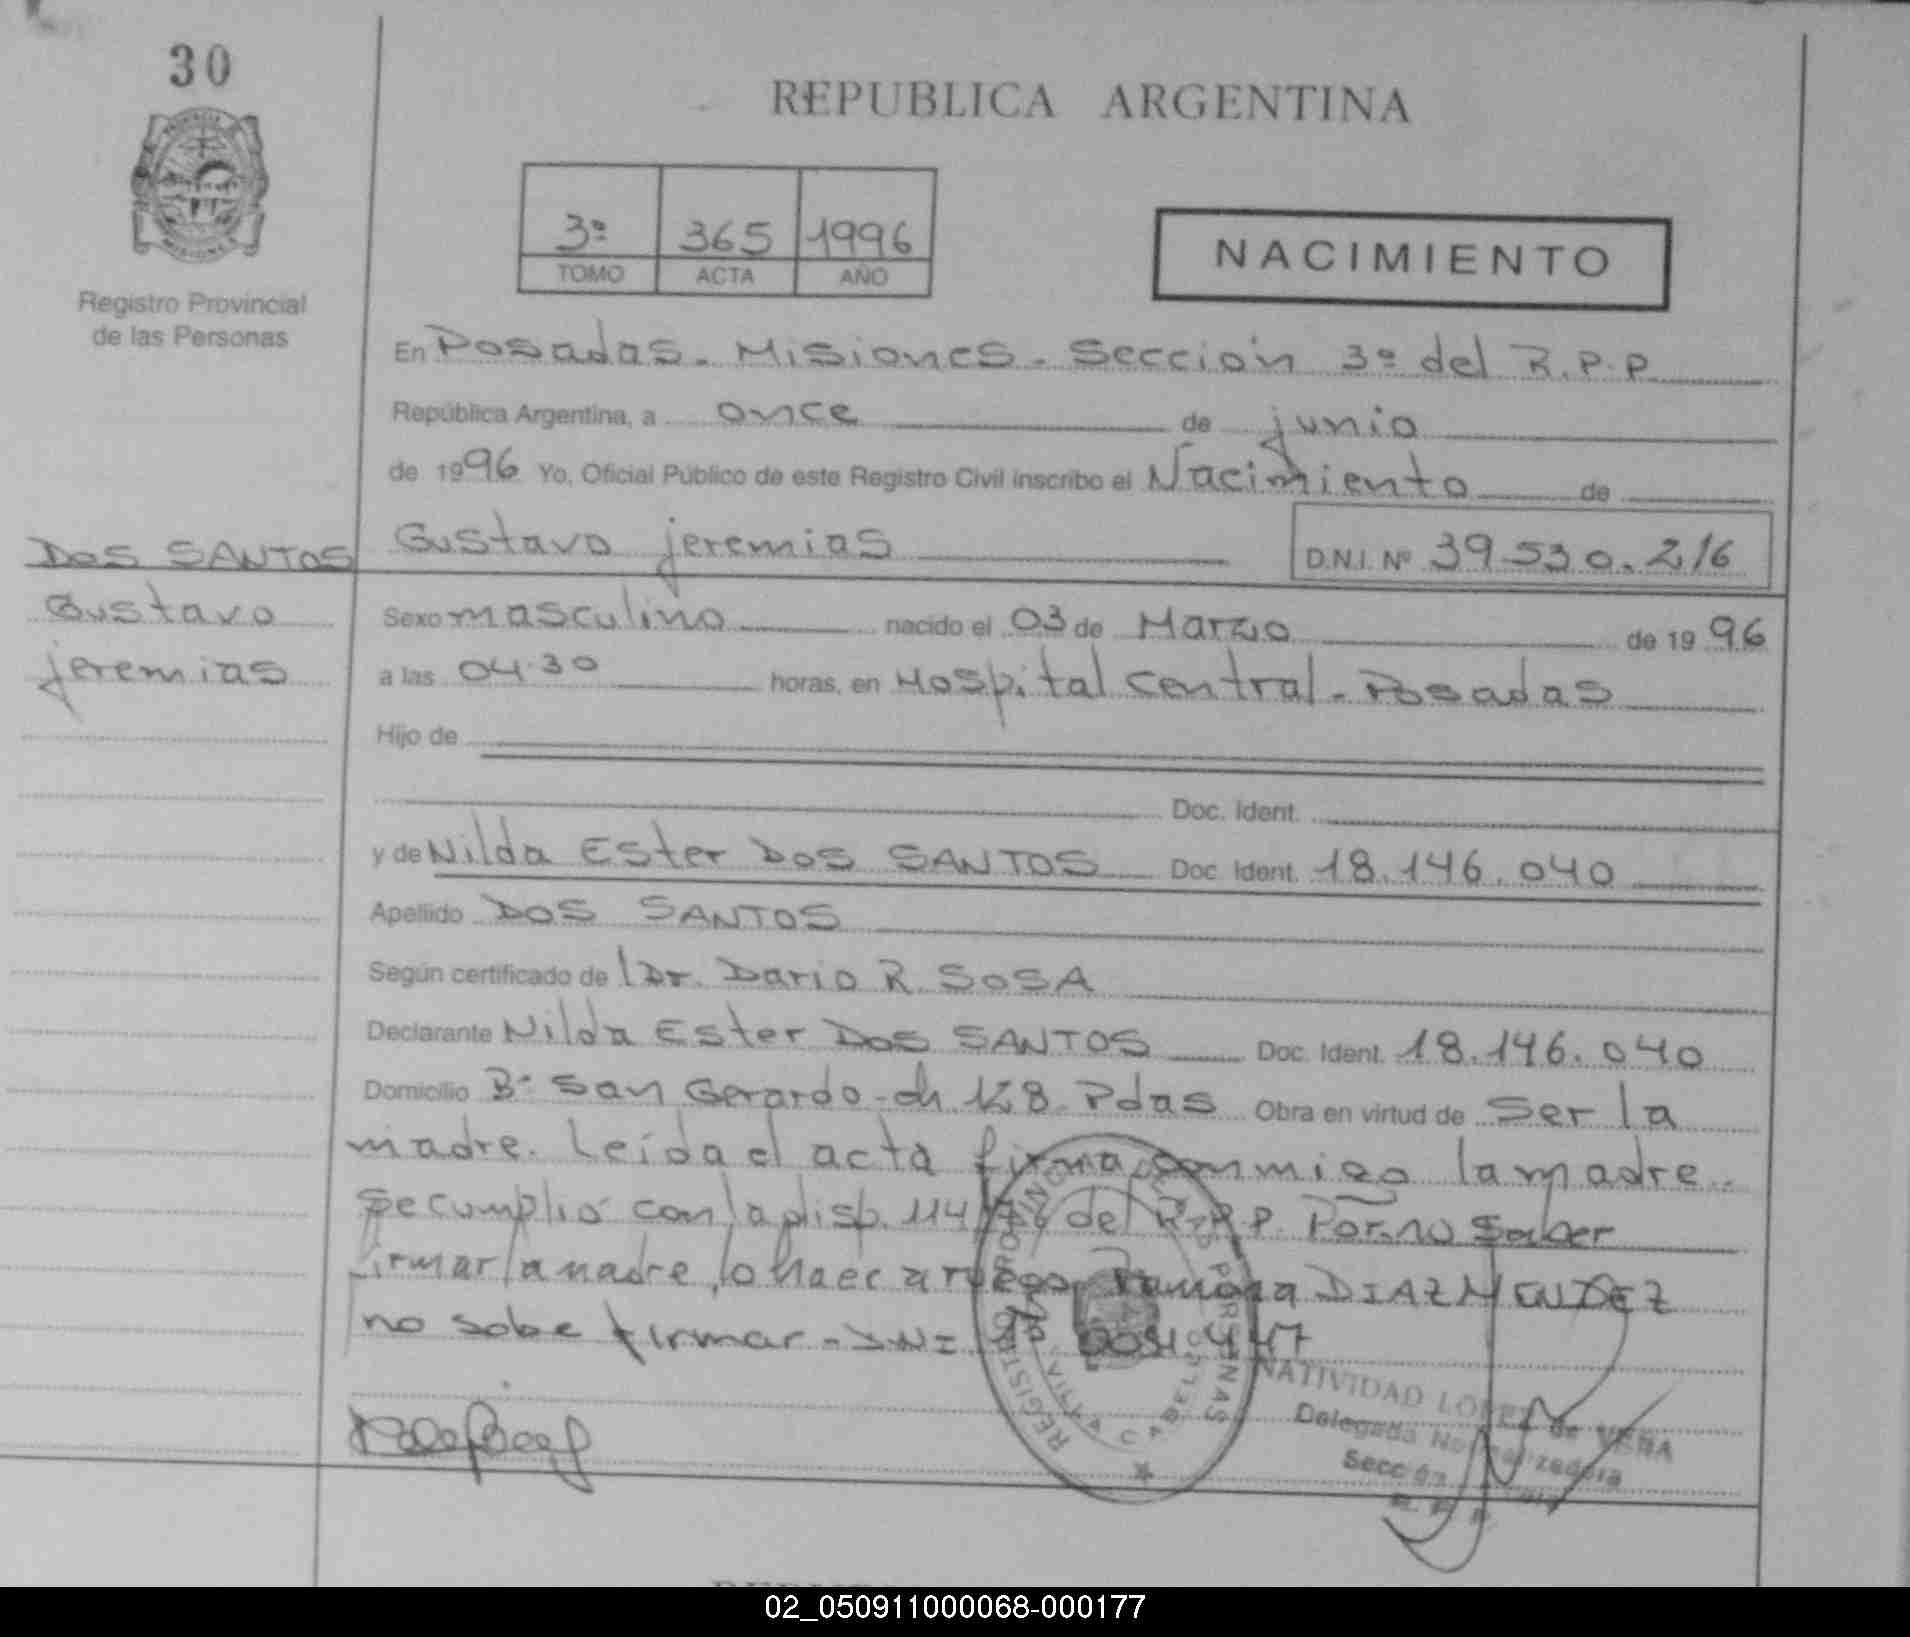 30
REPUBLICA ARGENTINA
3º 365 1996
TOMO ACTA AÑO
NACIMIENTO
Registro Provincial
de las Personas
En Posadas - Misiones - Sección 3º del R.P.P
República Argentina, a once de junio
de 1996 Yo, Oficial Público de este Registro Civil inscribo el Nacimiento de
Gustavo jeremias D.N.I. Nº 39 530.216
DOS SANTOS
Gustavo
jeremias
Sexo masculino nacido el 03 de Marzo de 19 96
a las 04.30 horas, en Hospital Central - Posadas
Hijo de
Doc. Ident.
y de Nilda Ester DOS SANTOS Doc. Ident. 18.146.040
Apellido DOS SANTOS
Según certificado de l Dr. Dario R. SOSA
Declarante Nilda Ester DOS SANTOS Doc. Ident. 18.146.040
Domicilio Bº San Gerardo - ch 128 Pdas Obra en virtud de Ser la
madre. Leída el acta firma conmigo la madre.
Se cumplió con la disp. 114 del R.P.P. Por no Saber
firmar la madre, lo hace a ruego Ramona DIAZ MENDEZ
no sabe firmar - DNI
REGISTRO PROVINCIAL DE LAS PERSONAS
NATIVIDAD LOPEZ de VERA
Delegada Normalizadora
Sección
R. P. P.
02_050911000068-000177